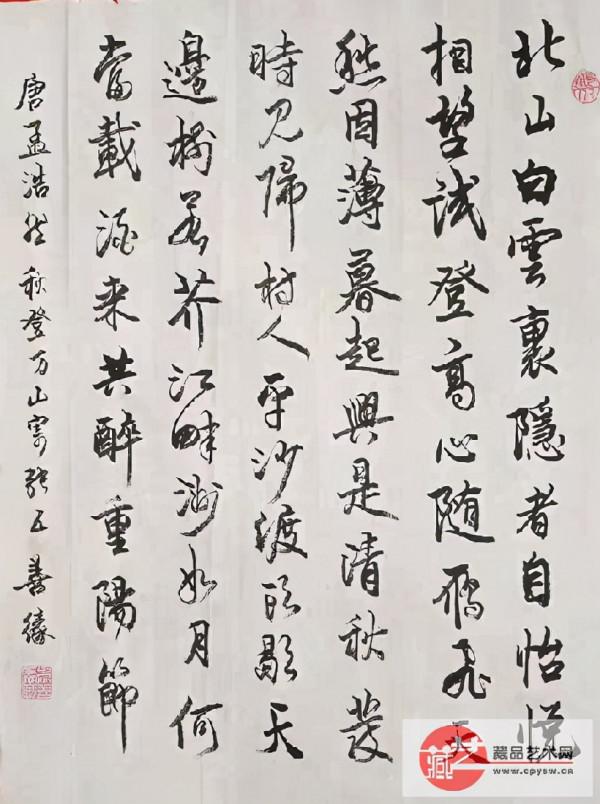 北山白雲裏隱者自怡悅
相望試登高心随雁飛灭
愁因薄暮起興是清秋發
時見歸村人平沙渡頭歇天
邊樹若荠江畔洲如月何
當載酒来共醉重陽節
唐孟浩然秋登万山寄張五 善
藏
藏品艺术网
www.cpysw.cn